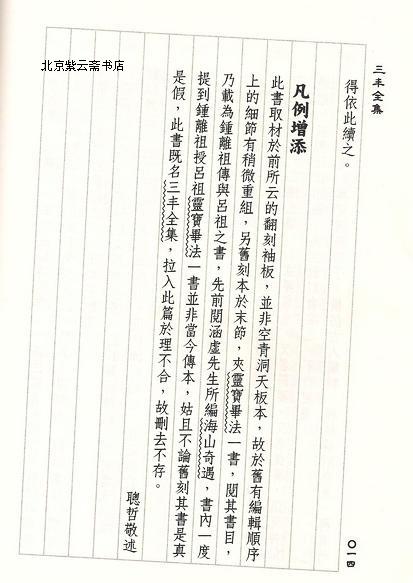 北京紫云斋书店
三丰全集
得依此續之。
凡例增添
此書取材於前所云的翻刻袖板，並非空青洞天板本，故於舊有編輯順序
上的細節有稍微重組，另舊刻本於末節，夾靈寶畢法一書，閱其書目，
乃載為鍾離祖傳與呂祖之書，先前閱涵虛先生所編海山奇遇，書內一度
提到鍾離祖授呂祖靈寶畢法一書並非當今傳本，姑且不論舊刻其書是真
是假，此書既名三丰全集，拉入此篇於理不合，故刪去不存。
聰哲敬述
〇一四